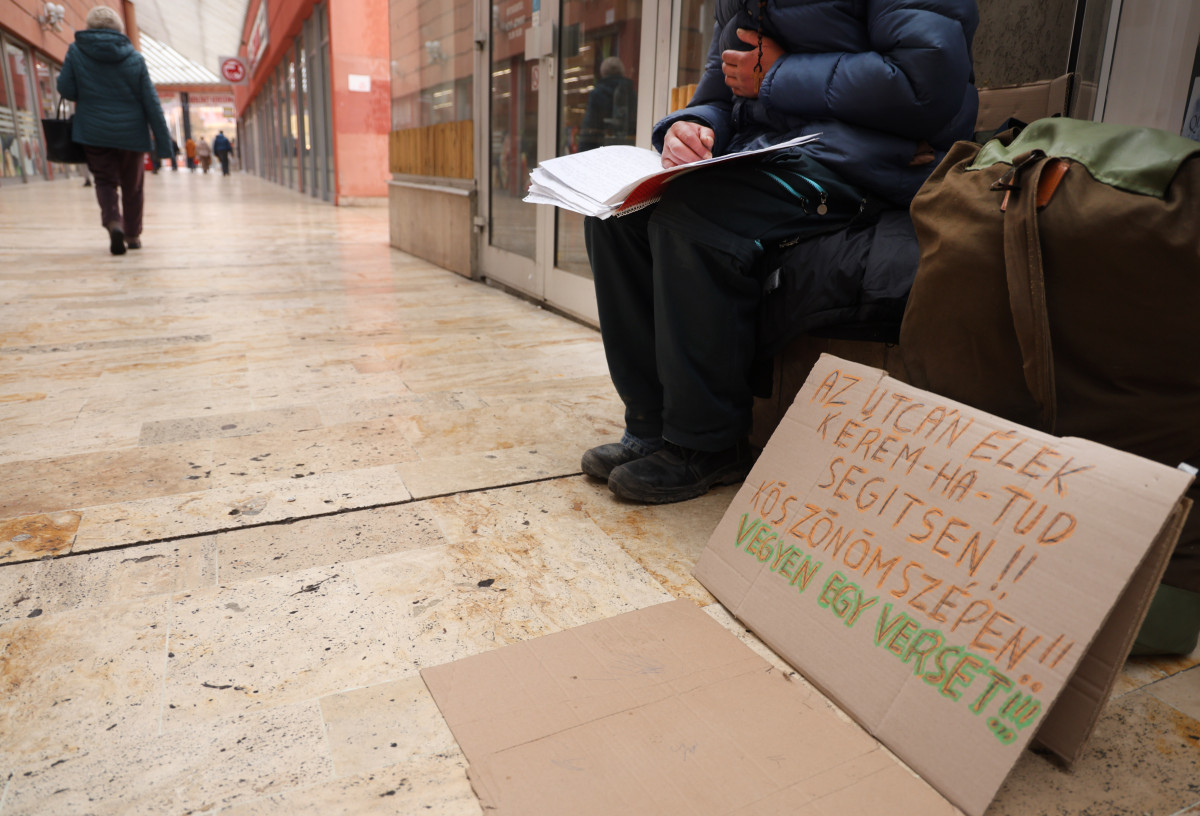 AZ UTCÁN ÉLEK
KEREM-HA-TUD
SEGITSEN!!
KÖSZÖNÖMSZÉPEN!!
VEGYEN EGY VERSET!!!